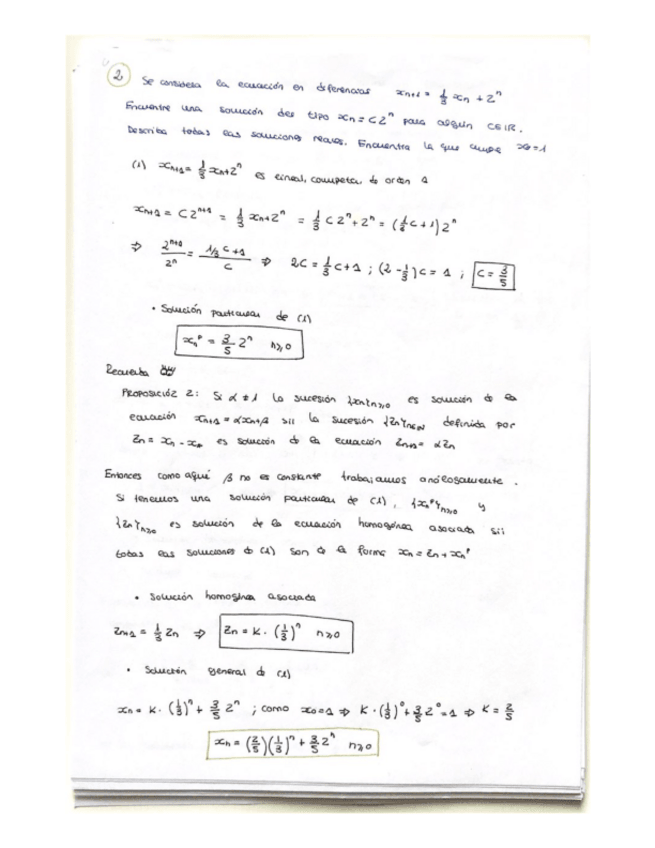 2 Se considera la ecuación en diferencias xₙ₊₁ = 1/3 xₙ + 2ⁿ
Encuentre una solución del tipo xₙ = C2ⁿ para algún C∈ℝ.
Describa todas las soluciones reales. Encuentra la que cumpla x₀=1
(1) xₙ₊₁ = 1/3 xₙ + 2ⁿ es lineal, completa, de orden 1
xₙ₊₁ = C2ⁿ⁺¹ = 1/3 xₙ + 2ⁿ = 1/3 C2ⁿ + 2ⁿ = (1/3 C + 1) 2ⁿ
⇒ 2ⁿ⁺¹/2ⁿ = (1/3 C + 1)/C ⇒ 2C = 1/3 C + 1 ; (2 - 1/3) C = 1 ; C = 3/5
• Solución particular de (1)
xₙᵖ = 3/5 2ⁿ n≥0
Recuerda
PROPOSICIÓN 2: Si α ≠ 1 la sucesión {xₙ}ₙ≥₀ es solución de la
ecuación xₙ₊₁ = αxₙ + β sii la sucesión {Zₙ}ₙ∈ℕ definida por
Zₙ = xₙ - x* es solución de la ecuación Zₙ₊₁ = αZₙ
Entonces como aquí β no es constante trabajamos análogamente.
Si tenemos una solución particular de (1), {xₙᵖ}ₙ≥₀ y
{Zₙ}ₙ≥₀ es solución de la ecuación homogénea asociada sii
todas las soluciones de (1) son de la forma xₙ = Zₙ + xₙᵖ
• Solución homogénea asociada
Zₙ₊₁ = 1/3 Zₙ ⇒ Zₙ = K · (1/3)ⁿ n≥0
• Solución general de (1)
xₙ = K · (1/3)ⁿ + 3/5 2ⁿ ; como x₀=1 ⇒ K · (1/3)⁰ + 3/5 2⁰ = 1 ⇒ K = 2/5
xₙ = (2/5)(1/3)ⁿ + 3/5 2ⁿ n≥0